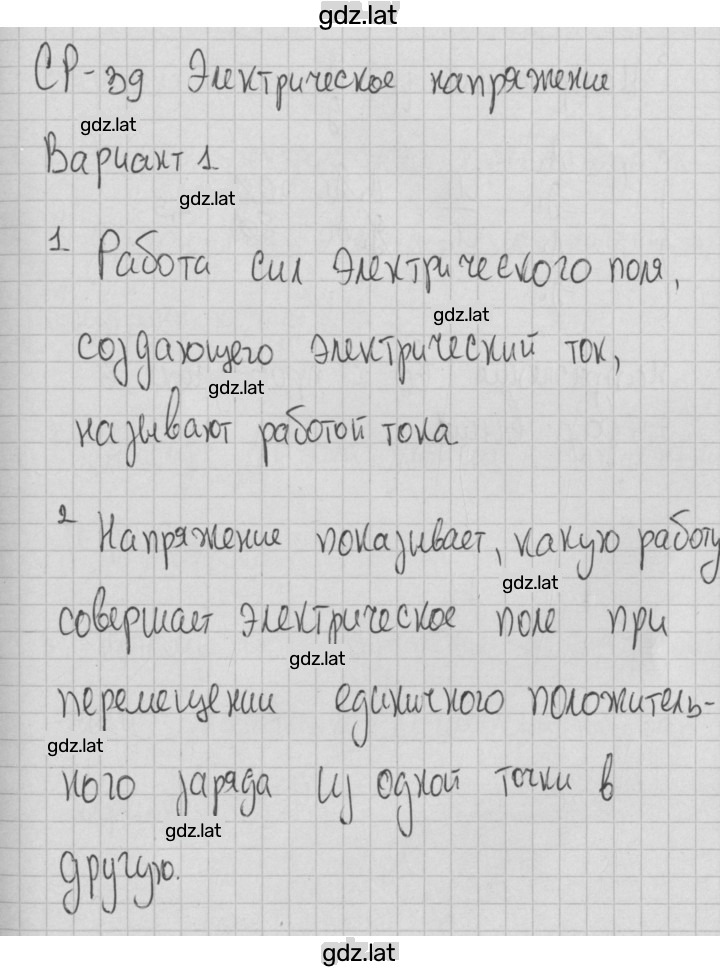 gdz.lat
СР-39 Электрическое напряжение
gdz.lat
Вариант 1
gdz.lat
1 Работа сил электрического поля,
gdz.lat
создающего электрический ток,
gdz.lat
называют работой тока
2 Напряжение показывает, какую работу
gdz.lat
совершает электрическое поле при
gdz.lat
перемещении единичного положитель-
gdz.lat
ного заряда из одной точки в
gdz.lat
другую.
gdz.lat